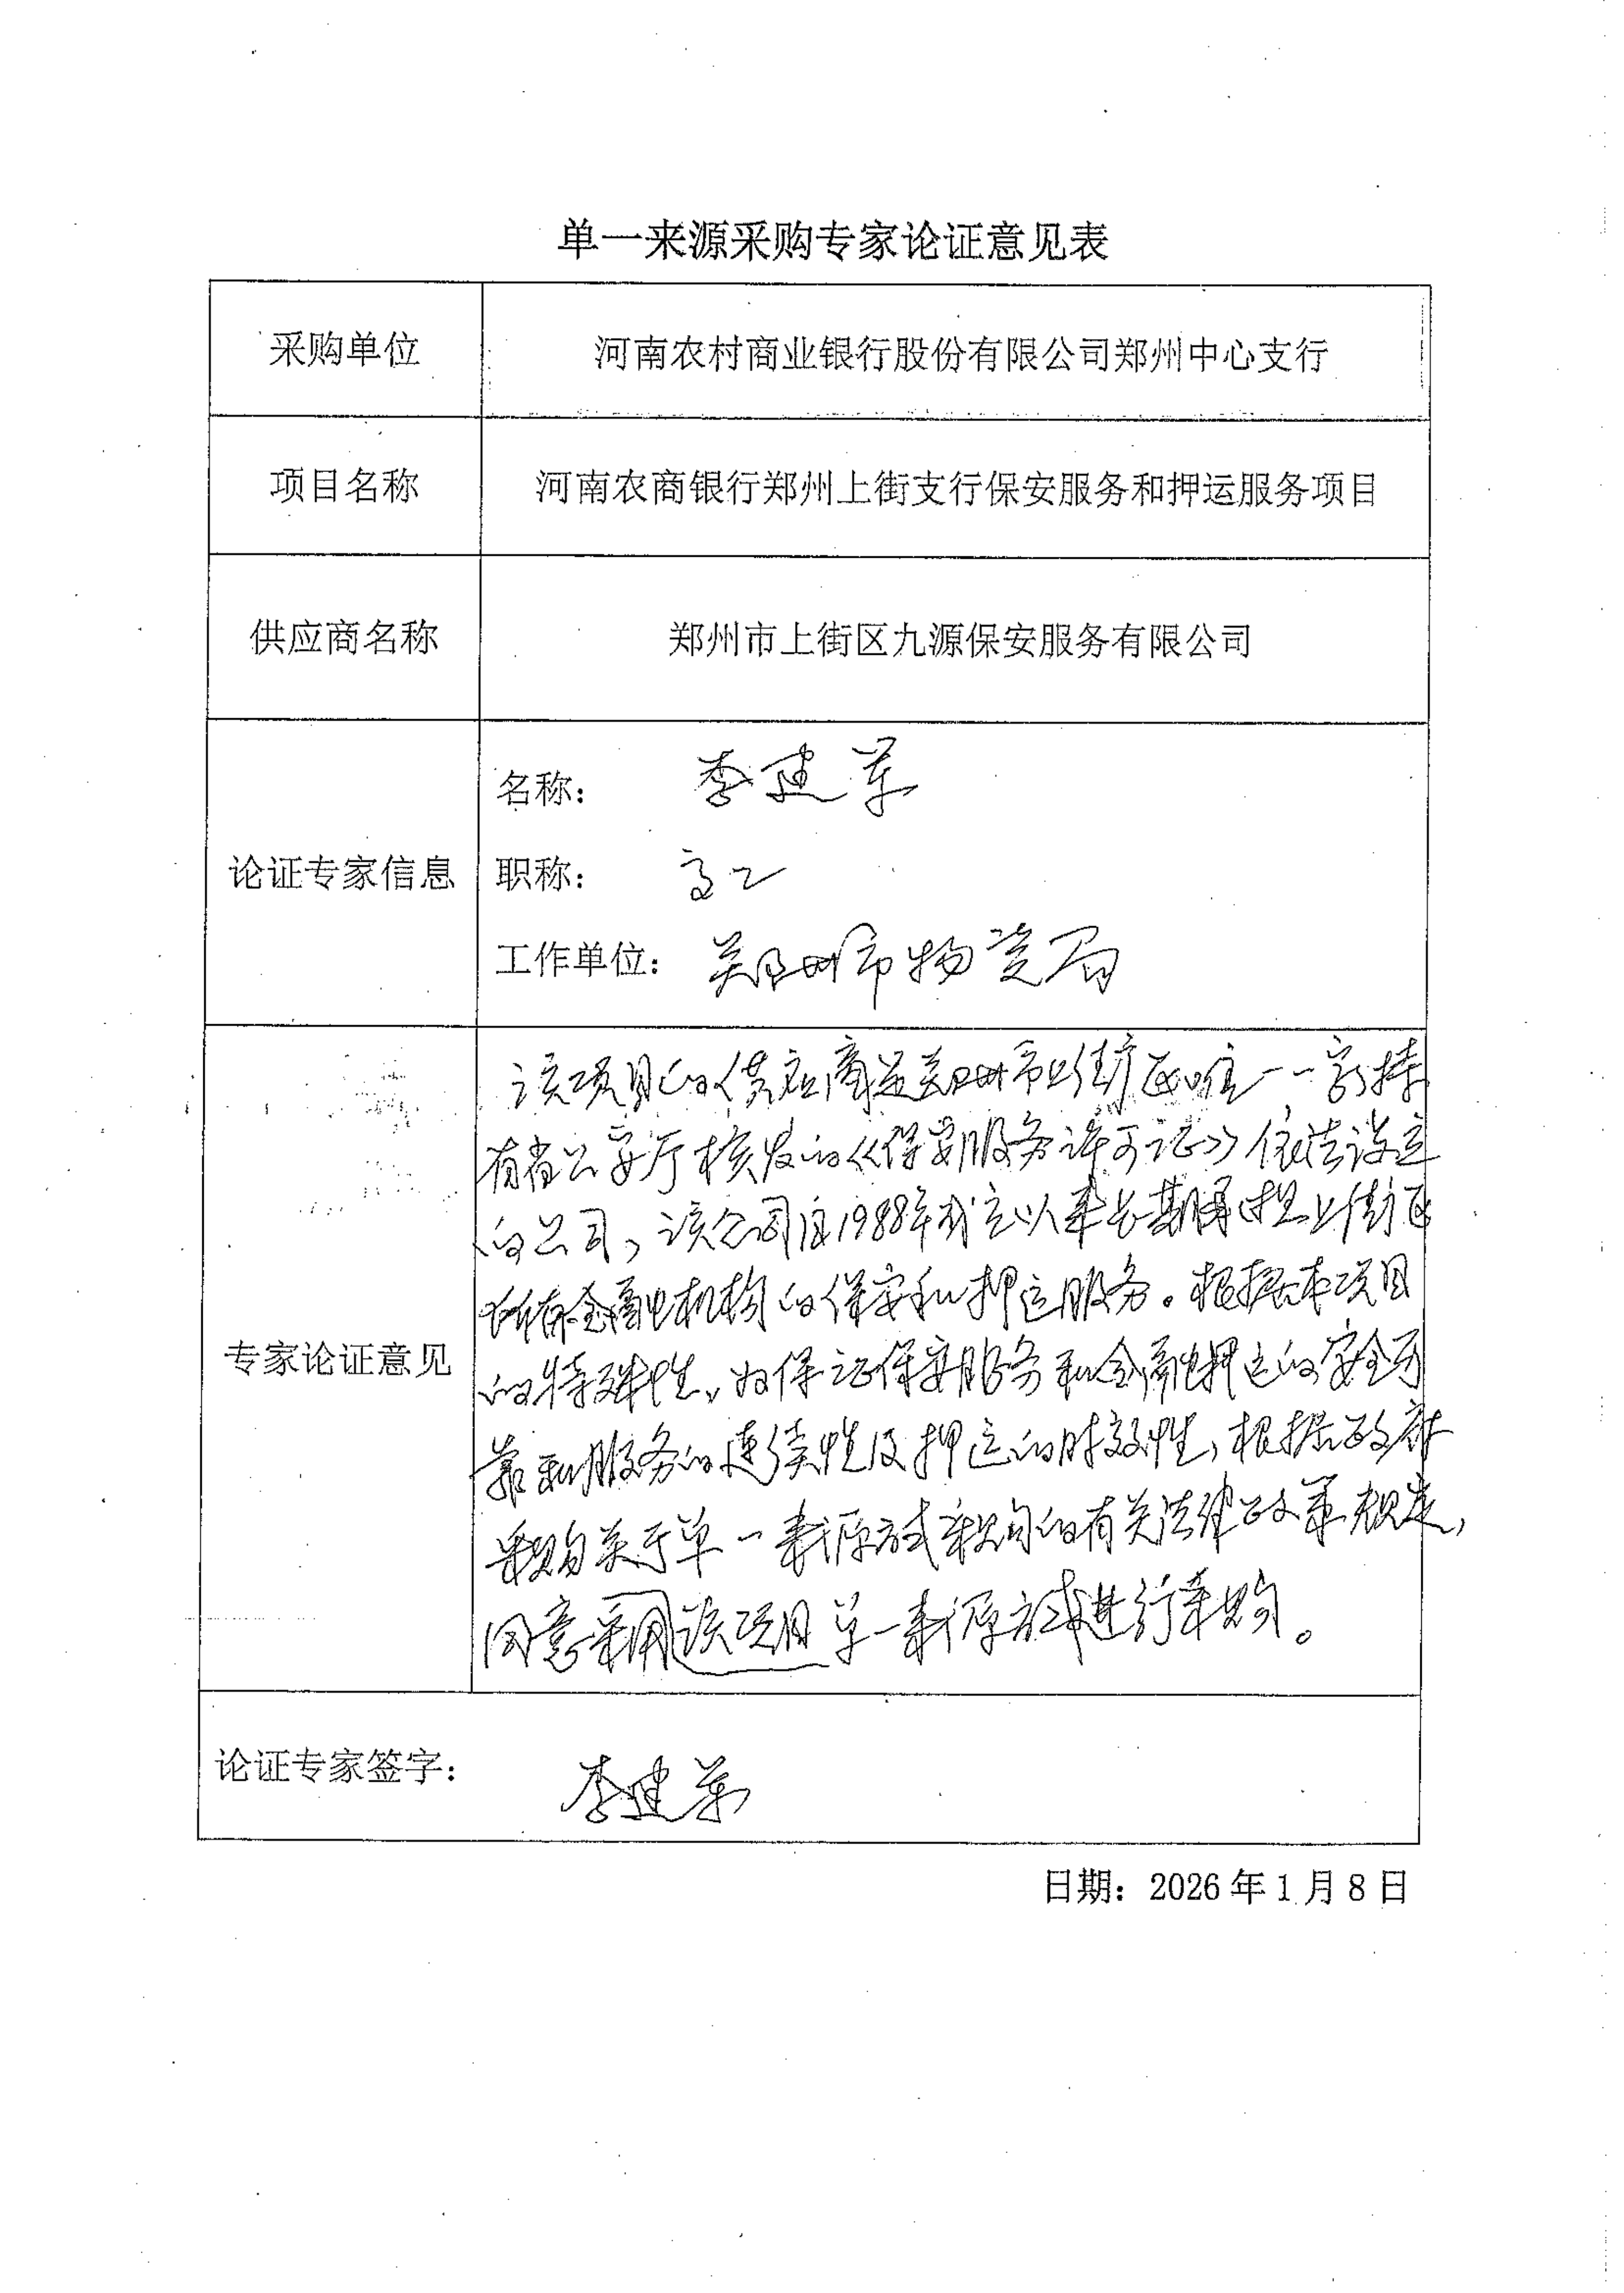 单一来源采购专家论证意见表
采购单位
河南农村商业银行股份有限公司郑州中心支行
项目名称
河南农商银行郑州上街支行保安服务和押运服务项目
供应商名称
郑州市上街区九源保安服务有限公司
论证专家信息
名称： 李建军
职称： 高工
工作单位： 郑州市物资局
专家论证意见
该项目的供应商是郑州市上街区唯一一家持
有省公安厅核发的《保安服务许可证》依法设立
的公司，该公司自1988年成立以来长期担上街区
所有金融机构的保安和押运服务。根据本项目
的特殊性，为保证保安服务和金融押运的安全可
靠和服务的连续性及押运的时效性，根据政府
采购关于单一来源方式采购的有关法律政策规定，
同意采用该项目单一来源方式进行采购。
论证专家签字： 李建军
日期：2026年1月8日